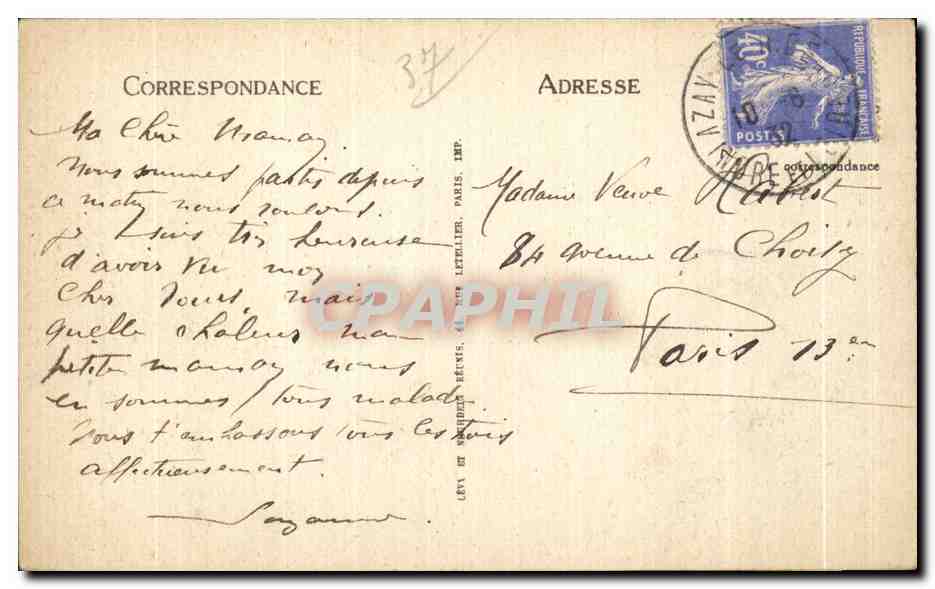 37
CORRESPONDANCE
Ma Chère Maman,
nous sommes partis depuis
ce matin nous roulons.
je suis très heureuse
d'avoir vu
Cher Tours, mais
quelle chaleur ma
petite maman nous
en sommes tous malade
nous t'embrassons tous les trois
affectueusement.
Suzanne.
LÉVY ET NEURDEIN RÉUNIS, 44, RUE LETELLIER, PARIS, IMP.
ADRESSE
correspondance
Madame Veuve
84 avenue de Choisy
Paris 13 em
REPUBLIQUE FRANÇAISE
40c
POSTES
AZAY
10 -8
32
INDRE
CPAPHIL